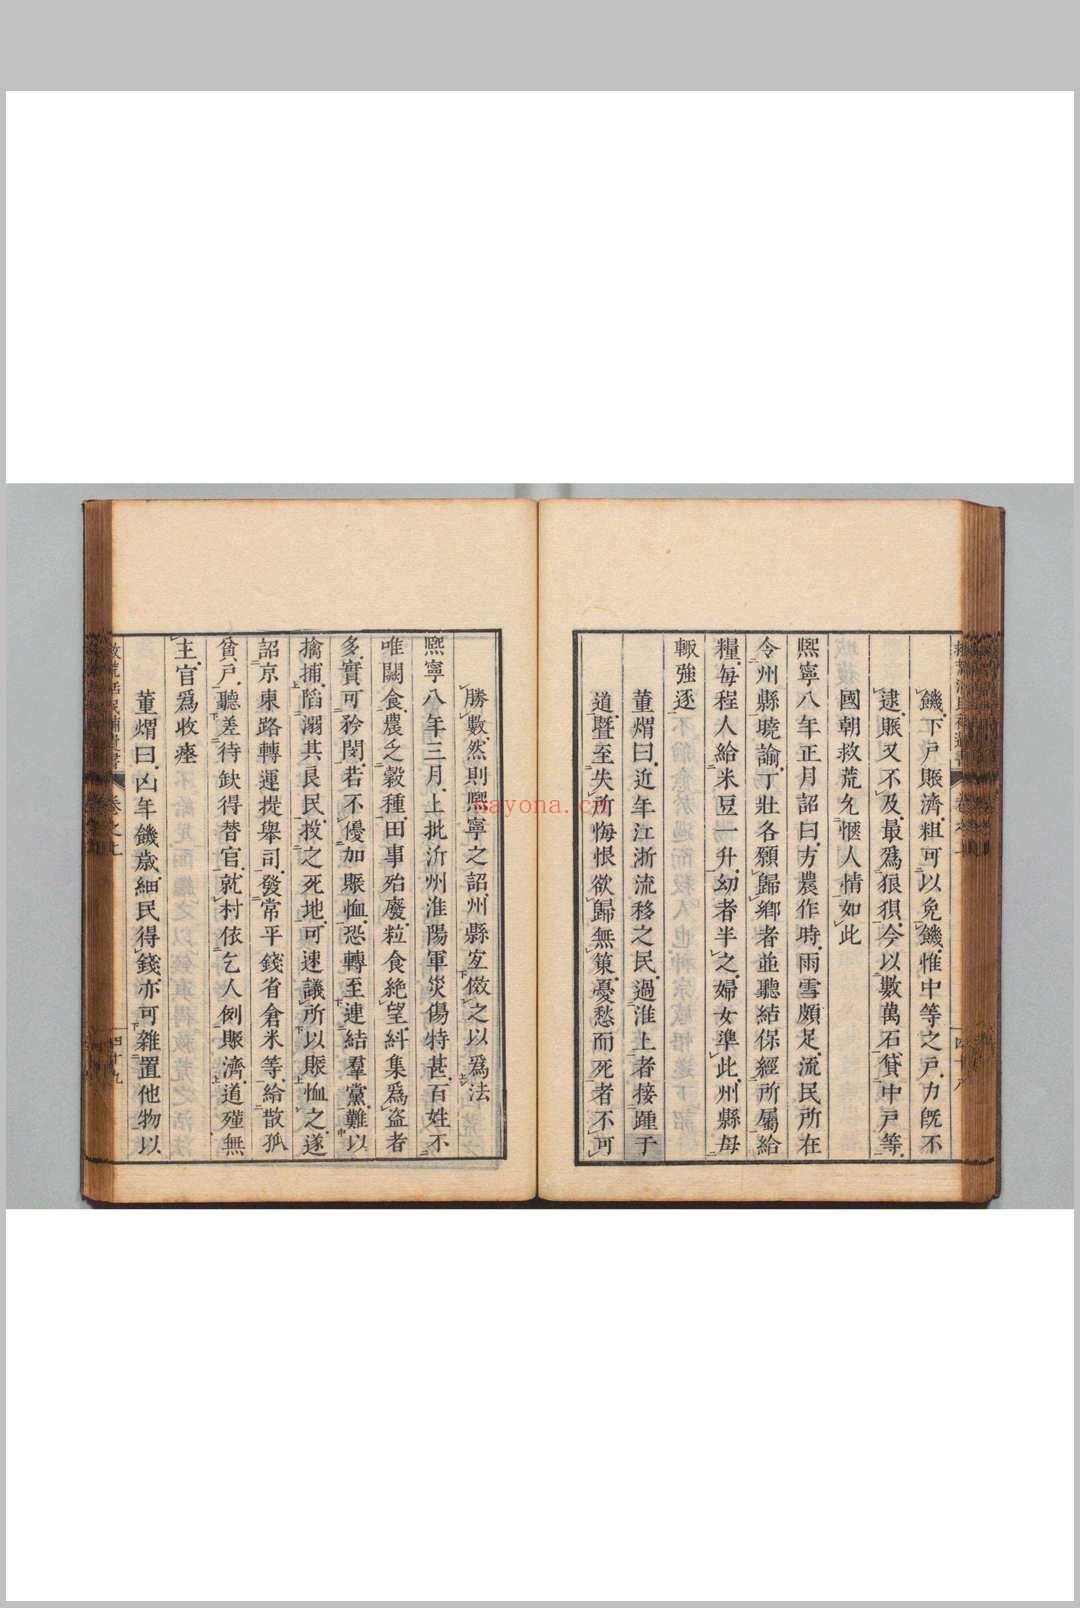 饑下戶賑濟粗可以免饑惟中等之戶力旣不
逮賑又不及最爲狼狽今以數萬石貸中戶等
國朝救荒允愜人情如此
熙寧八年正月詔曰方農作時雨雪頗足流民所在
令州縣曉諭丁壯各願歸鄉者並聽結保經所屬給
糧每程人給米豆一升幼者半之婦女準此州縣毋
輙強逐
董煟曰近年江浙流移之民過淮上者接踵于
道曁至失所悔恨欲歸無策憂愁而死者不可
勝數然則熙寧之詔州縣宜倣之以爲法
熙寧八年三月上批沂州淮陽軍災傷特甚百姓不
唯闕食農乏穀種田事殆廢粒食絶望糾集爲盜者
多實可矜閔若不優加賑恤恐轉至連結羣黨難以
擒捕陷溺其良民投之死地可速議所以賑恤之遂
詔京東路轉運提舉司發常平錢省倉米等給散孤
貧戶聽差待缺得替官就村依乞人例賑濟道殣無
主官爲收瘞
董煟曰凶年饑歲細民得錢亦可雜置他物以
救荒活民補遺書
卷之上
四十八
四十九
nayona.cn